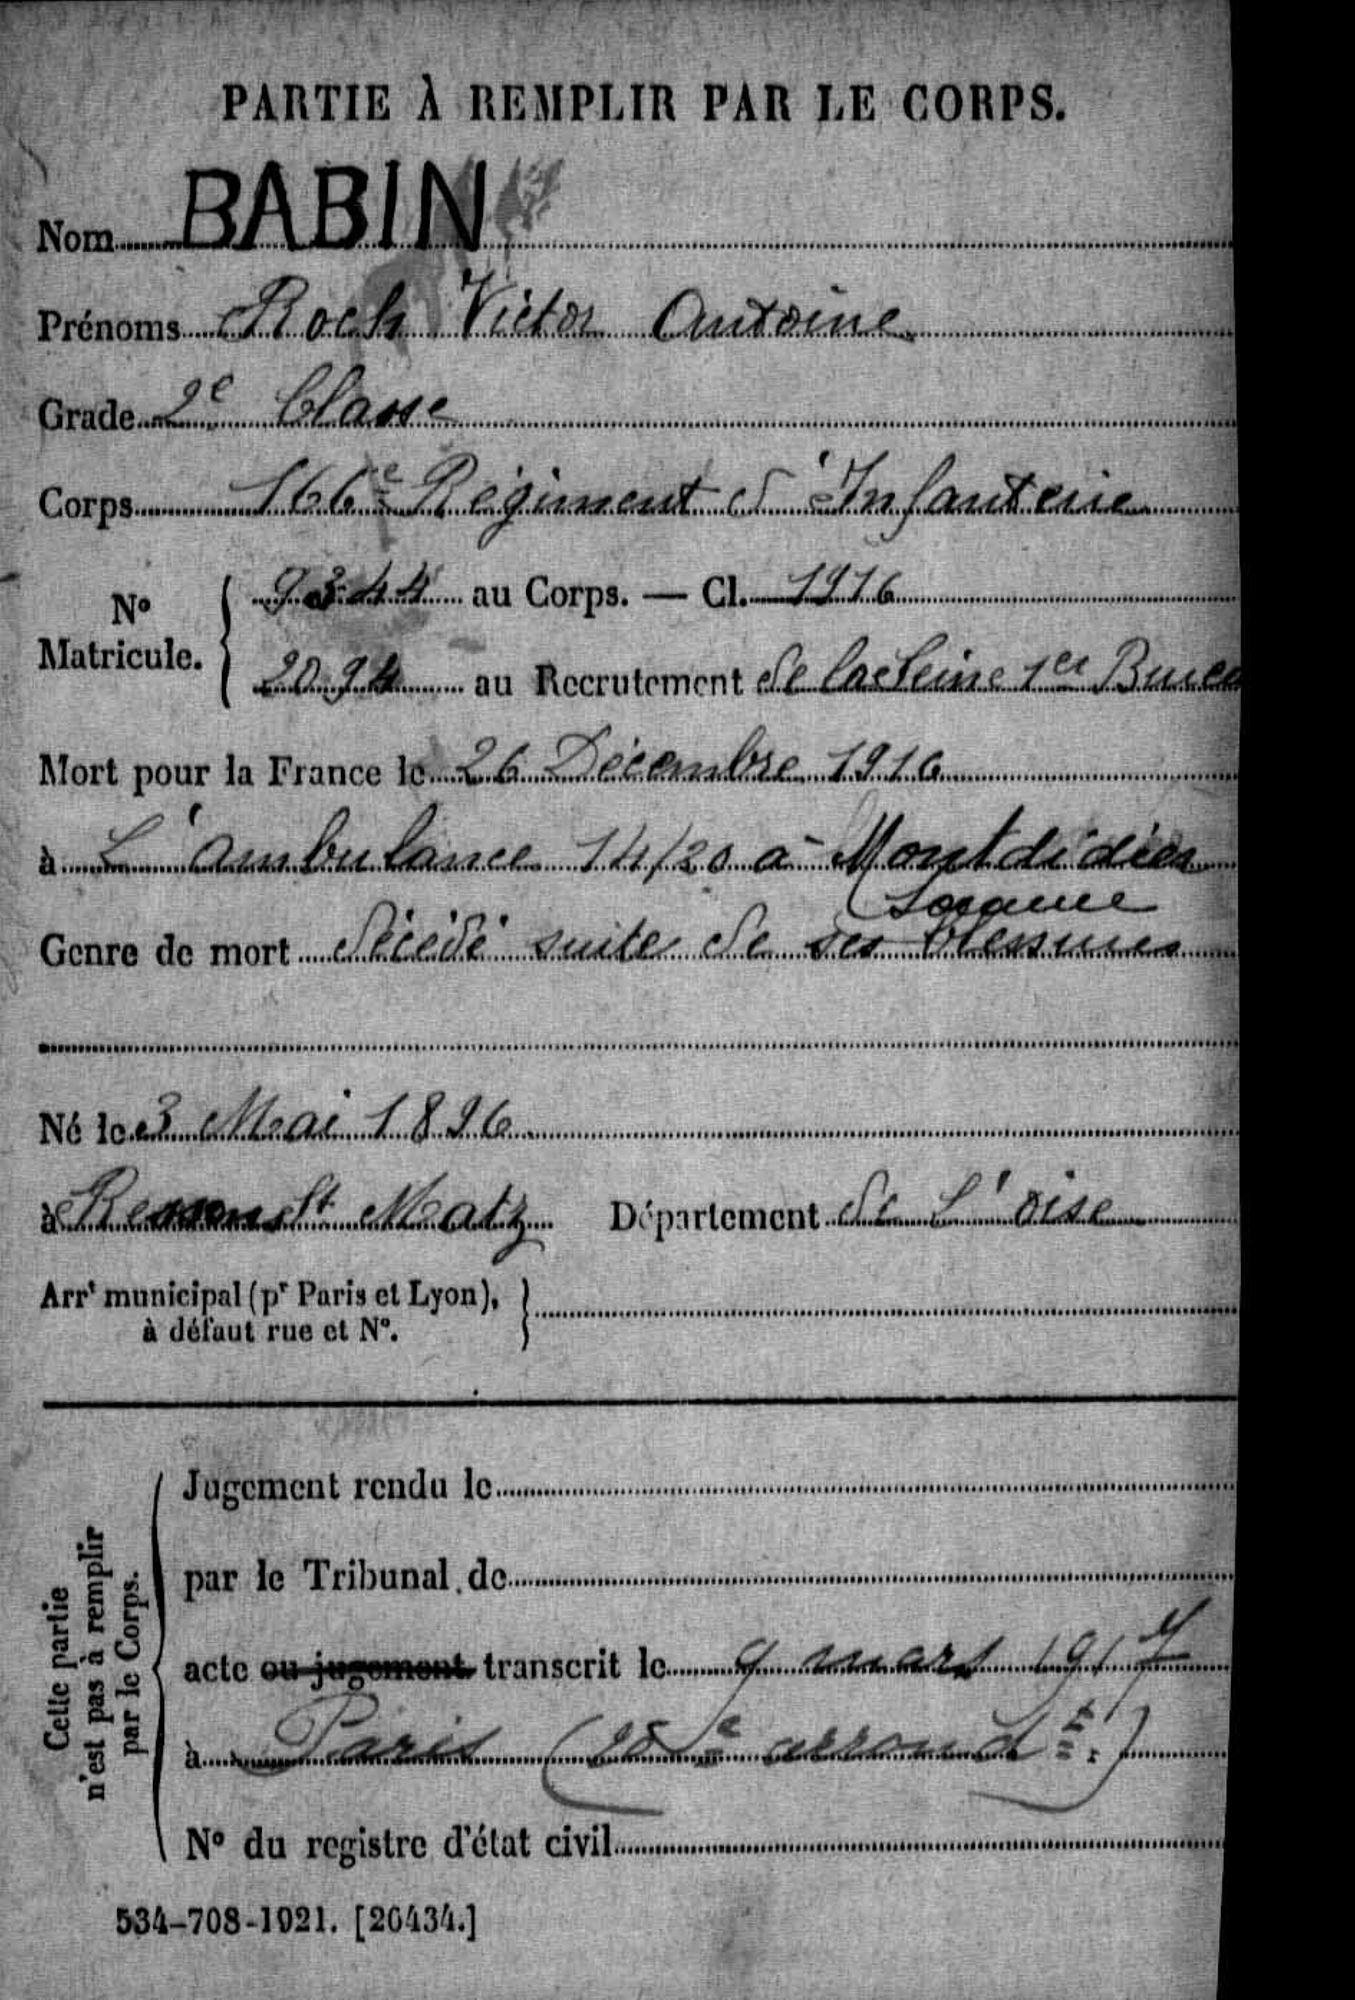 PARTIE À REMPLIR PAR LE CORPS.
Nom BABIN
Prénoms Roch Victor Antoine
Grade 2e Classe
Corps 166e Régiment d'Infanterie
N° Matricule. 9344 au Corps. — Cl. 1916
2094 au Recrutement de la Seine 1er Burea
Mort pour la France le 26 Décembre 1916
à L'ambulance 14/20 à Montdidier
Somme
Genre de mort décédé suite de ses blessures
Né le 3 Mai 1896
à Ressons St Matz Département de L'oise
Arrt municipal (pr Paris et Lyon),
à défaut rue et N°.
Cette partie
n'est pas à remplir
par le Corps.
Jugement rendu le
par le Tribunal de
acte ou jugement transcrit le 9 mars 1917
à Paris arrondt.)
N° du registre d'état civil
534-708-1921. [26434.]